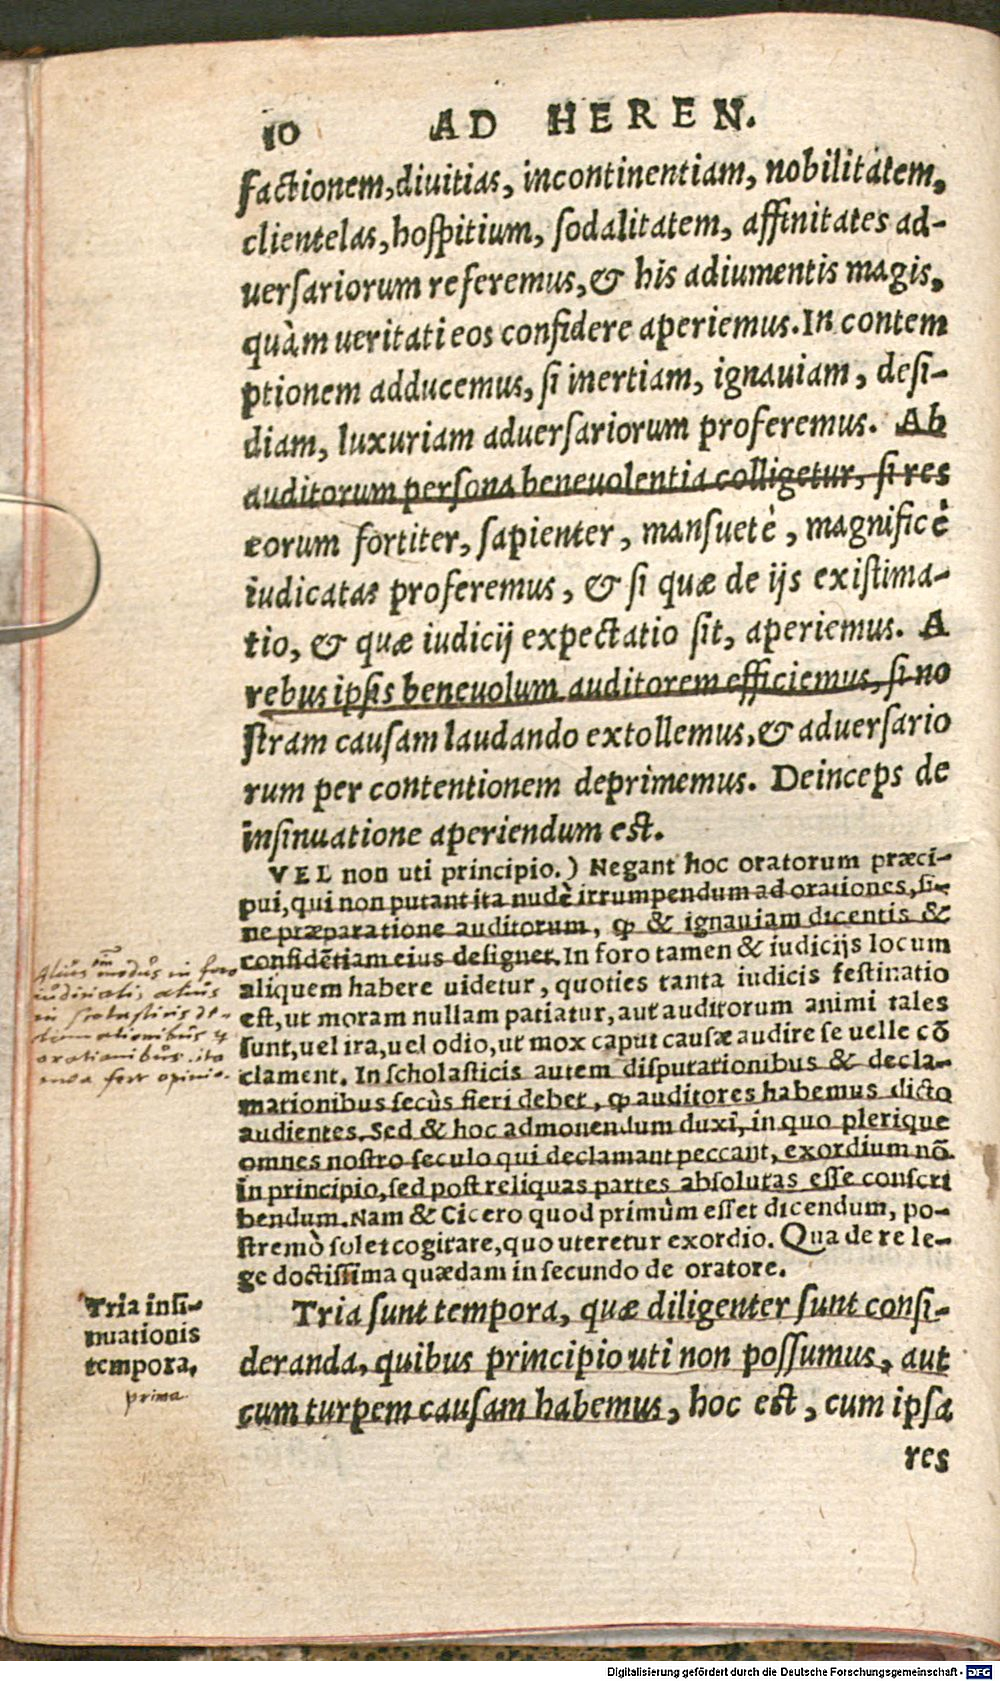 10 AD HEREN.
factionem, diuitias, incontinentiam, nobilitatem,
clientelas, hospitium, sodalitatem, affinitates ad-
uersariorum referemus, & his adiumentis magis,
quàm ueritati eos confidere aperiemus. In contem
ptionem adducemus, si inertiam, ignauiam, desi-
diam, luxuriam aduersariorum proferemus. Ab
auditorum persona beneuolentia colligetur, si res
eorum fortiter, sapienter, mansuetè, magnificè
iudicatas proferemus, & si quæ de ijs existima-
tio, & quæ iudicij expectatio sit, aperiemus. A
rebus ipsis beneuolum auditorem efficiemus, si no
stram causam laudando extollemus, & aduersario
rum per contentionem deprimemus. Deinceps de
insinuatione aperiendum est.
VEL non uti principio.) Negant hoc oratorum præci-
pui, qui non putant ita nudè irrumpendum ad orationes, si-
ne præparatione auditorum, ꝙ & ignauiam dicentis &
confidẽtiam eius designet. In foro tamen & iudicijs locum
aliquem habere uidetur, quoties tanta iudicis festinatio
est, ut moram nullam patiatur, aut auditorum animi tales
sunt, uel ira, uel odio, ut mox caput causæ audire se uelle cõ
clament. In scholasticis autem disputationibus & decla-
mationibus secùs fieri debet, ꝙ auditores habemus dicto
audientes. Sed & hoc admonendum duxi, in quo plerique
omnes nostro seculo qui declamant peccant, exordium nõ
in principio, sed post reliquas partes absolutas esse conscri
bendum. Nam & Cicero quod primùm esset dicendum, po-
stremò solet cogitare, quo uteretur exordio. Qua de re le-
ge doctissima quædam in secundo de oratore.
Tria sunt tempora, quæ diligenter sunt consi-
deranda, quibus principio uti non possumus, aut
cum turpem causam habemus, hoc est, cum ipsa
res
Alius modus in foro
iudiciali, alius
in scolasticis de-
clamationibus &
orationibus. ita
mea fert opinio.
Tria insi-
nuationis
tempora.
prima
Digitalisierung gefördert durch die Deutsche Forschungsgemeinschaft - DFG